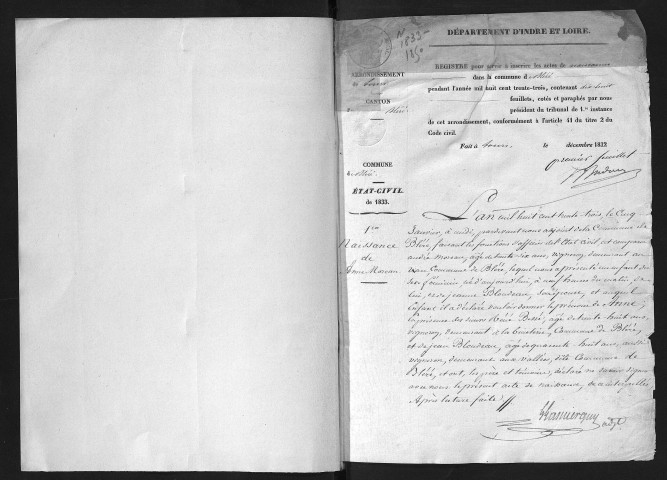 N°
1833
DÉPARTEMENT D'INDRE ET LOIRE.
REGISTRE pour servir à inscrire les actes de naissance
dans la commune de Bléré
pendant l'année mil huit cent trente-trois, contenant dix huit
feuillets, cotés et paraphés par nous
président du tribunal de 1.re instance
de cet arrondissement, conformément à l'article 41 du titre 2 du
Code civil.
Fait à Tours, le décembre 1832
premier feuillet
ARRONDISSEMENT
de Tours
CANTON
de Bléré
COMMUNE
de Bléré
ÉTAT-CIVIL
de 1833.
1re
Naissance
de
Anne Moreau
L'an mil huit cent trente trois, le Cinq
Janvier, à midi, pardevant nous adjoint de la Commune de
Bléré, faisant les fonctions d'officier de l'Etat Civil est comparu
André Moreau, agé de trente six ans, vigneron, demeurant au
Commune de Bléré, lequel nous a présenté un enfant du
sexe féminin né d'aujourd'hui, à neuf heures du matin, de
lui, et de Jeanne Blondeau, son épouse, et auquel
Enfant il a déclaré vouloir donner le prénom de Anne,
en présence des sieurs René Bessé, agé de trente huit ans,
vigneron, demeurant à la Commune de Bléré,
et de Jean Blondeau, agé de quarante huit ans, aussi
vigneron, demeurant aux vallées, dite Commune de
Bléré, et ont, les père et témoins, déclaré ne savoir signer
avec nous le présent acte de naissance, de ce interpellés
Après lecture faite.
adjt.